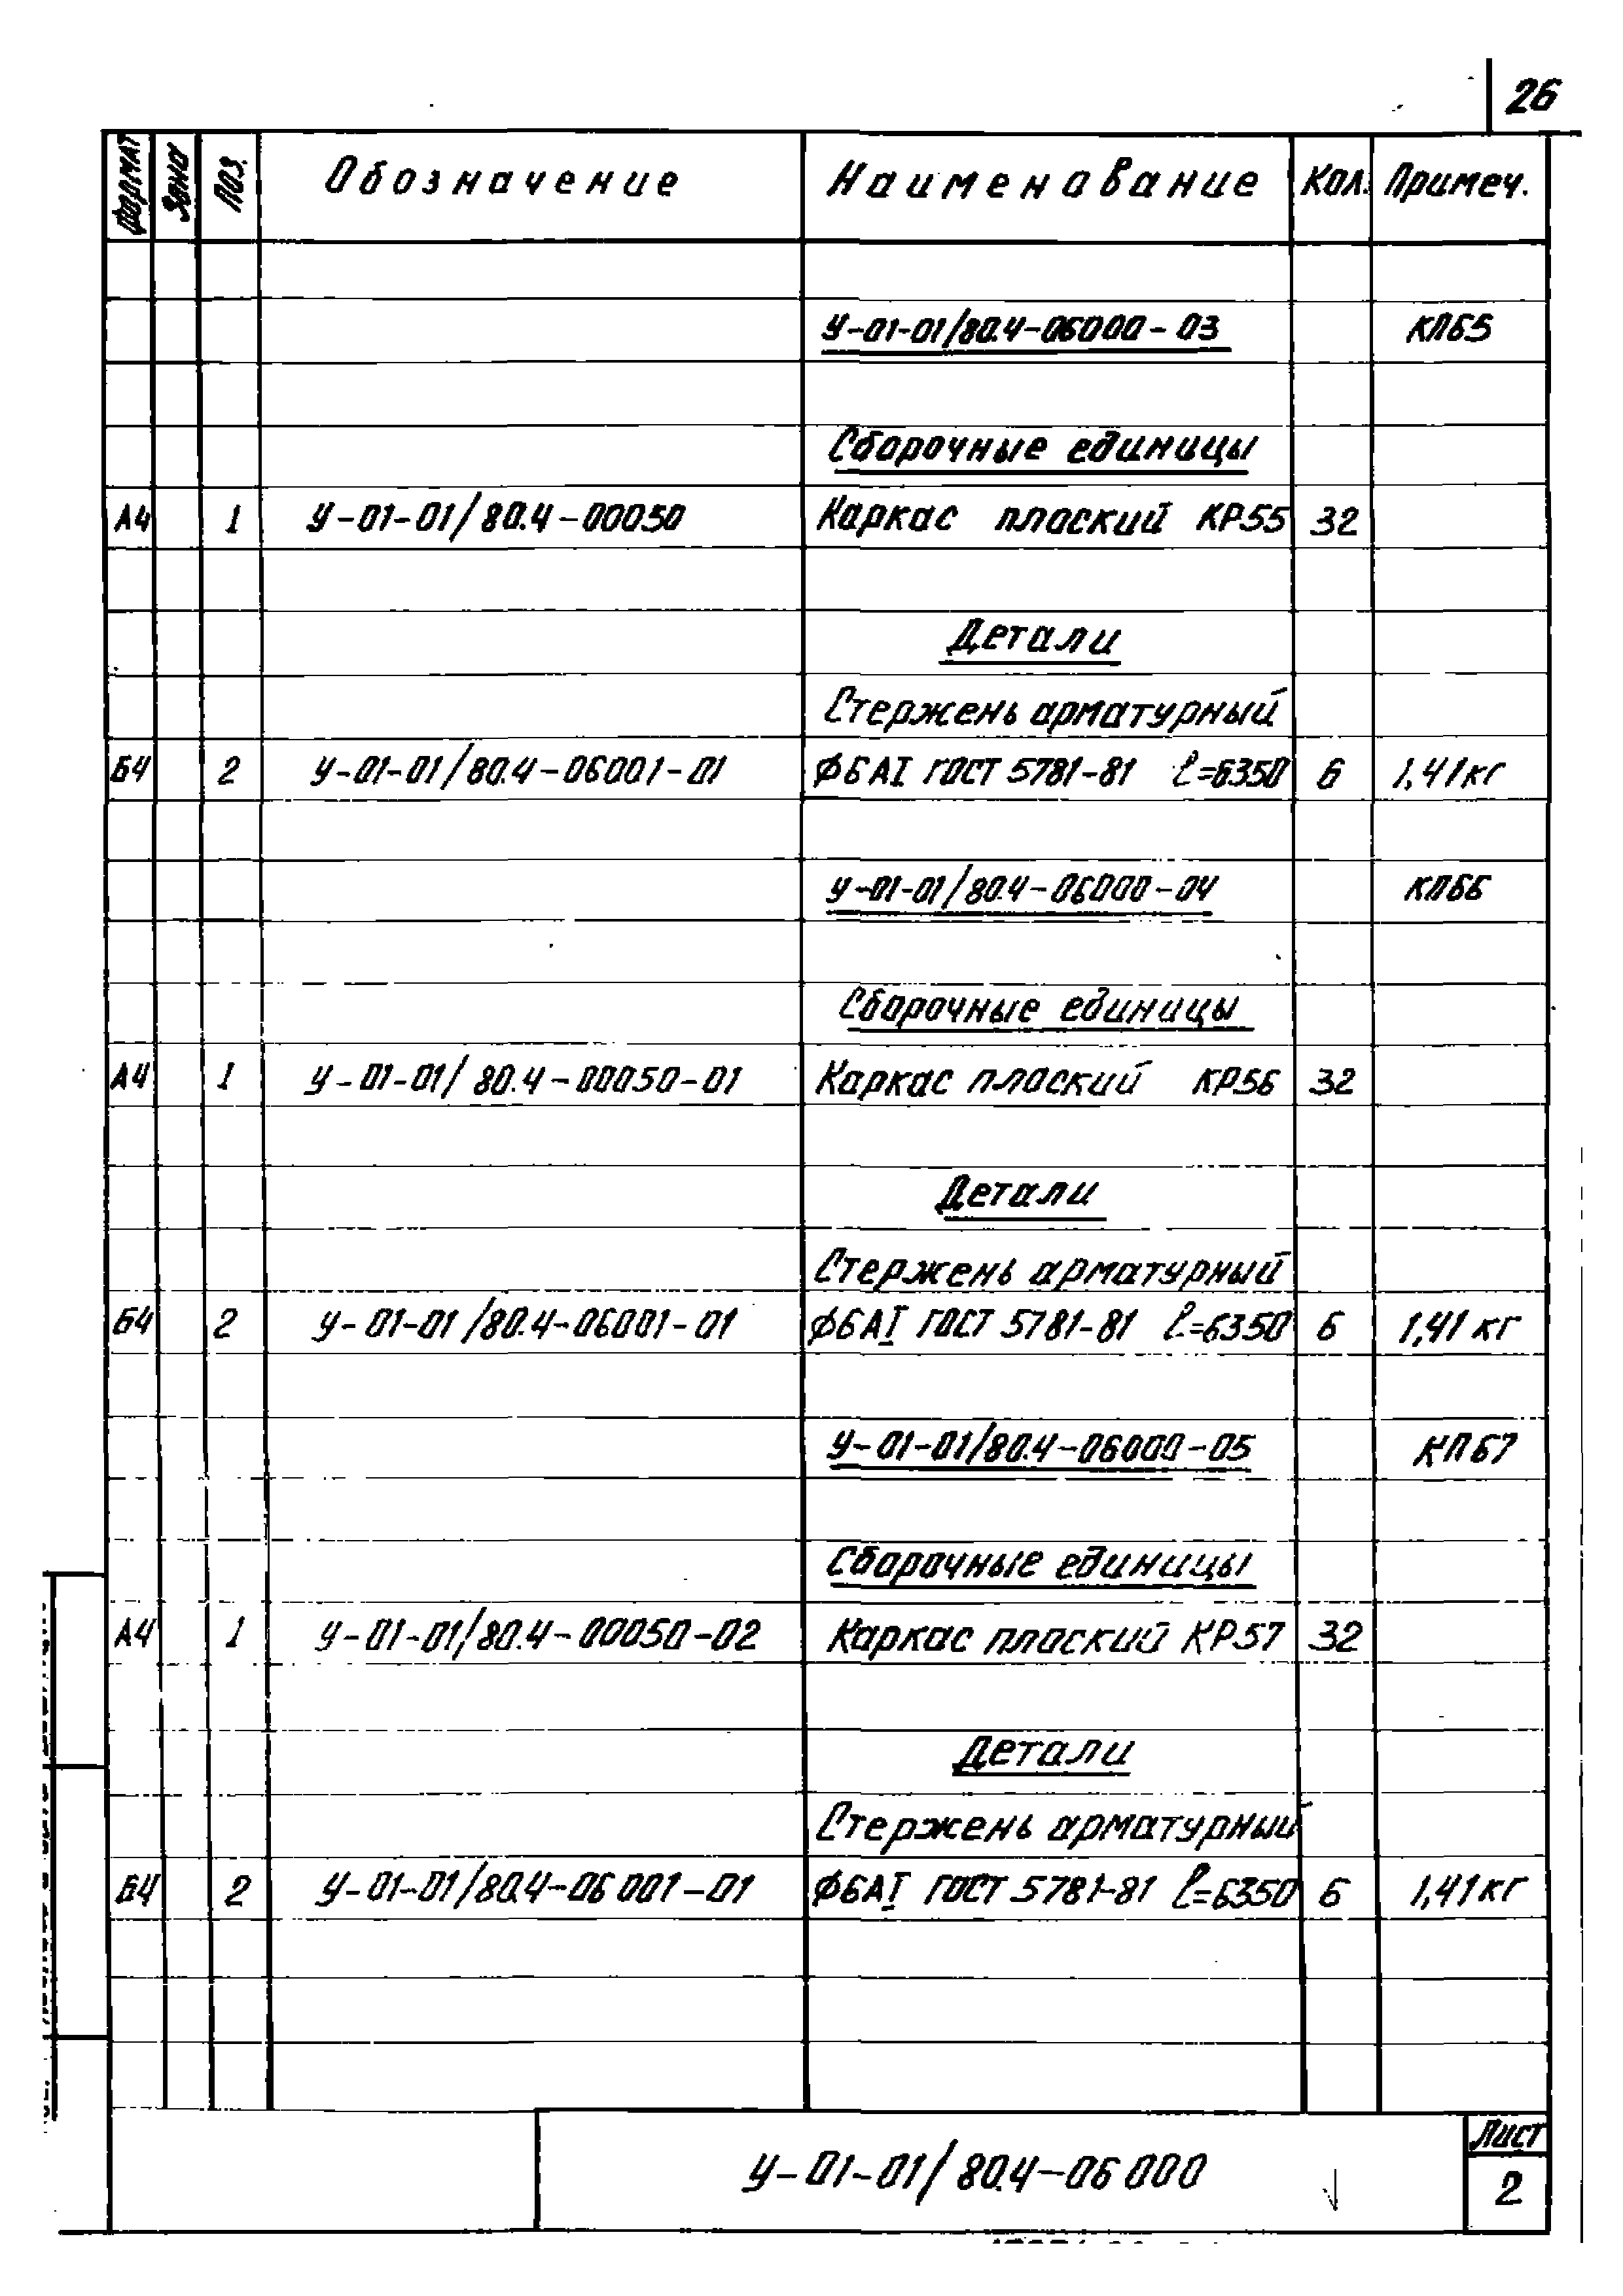 26
Формат Зона Поз. Обозначение Наименование Кол. Примеч.
У-01-01/80.4-06000-03 КП65
Сборочные единицы
А4 1 У-01-01/80.4-00050 Каркас плоский КР55 32
Детали
Стержень арматурный
Б4 2 У-01-01/80.4-06001-01 Ф6АI ГОСТ 5781-81 ℓ=6350 6 1,41кг
У-01-01/80.4-06000-04 КП66
Сборочные единицы
А4 1 У-01-01/80.4-00050-01 Каркас плоский КР56 32
Детали
Стержень арматурный
Б4 2 У-01-01/80.4-06001-01 Ф6АI ГОСТ 5781-81 ℓ=6350 6 1,41 кг
У-01-01/80.4-06000-05 КП67
Сборочные единицы
А4 1 У-01-01/80.4-00050-02 Каркас плоский КР57 32
Детали
Стержень арматурный
Б4 2 У-01-01/80.4-06001-01 Ф6АI ГОСТ 5781-81 ℓ=6350 6 1,41кг
У-01-01/80.4-06000
Лист
2